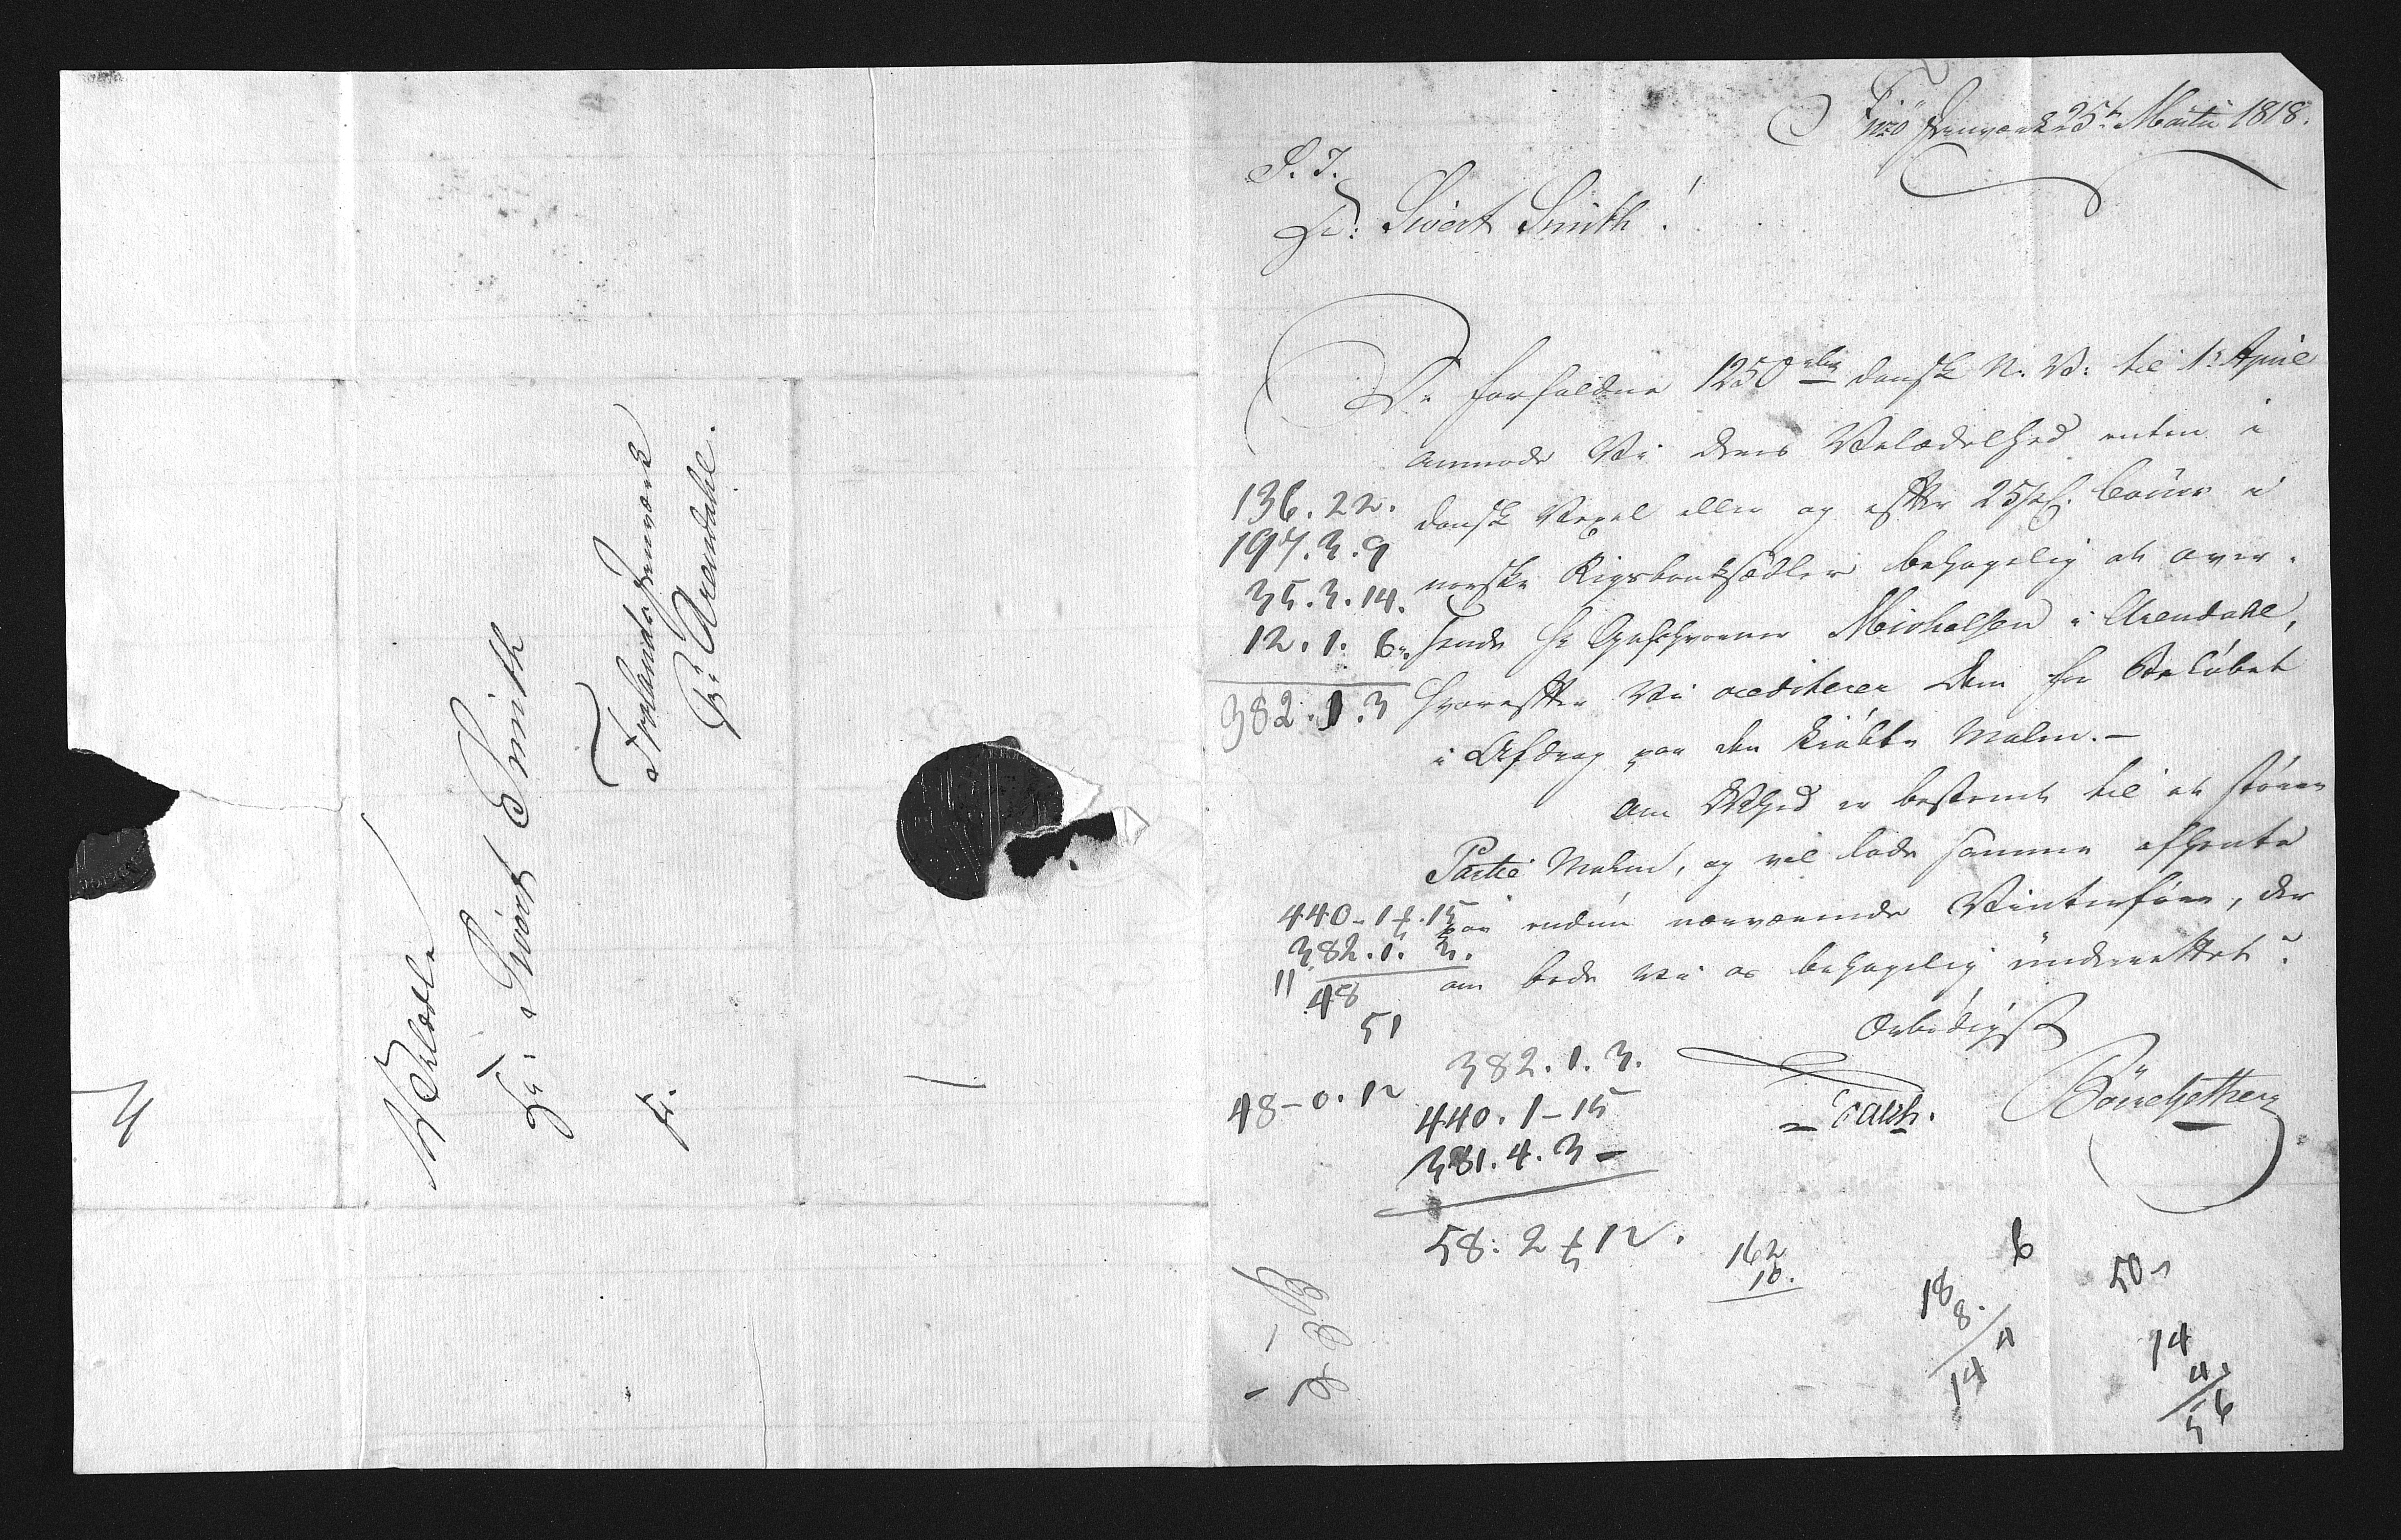 Velædle
Hr. Sivert Smith
Frolands Jernværk
pr. Arendahl.
Fr.
4
Jernværk 25t Martii 1818.
S. T.
Hr: Sivert Smith!
De forfaldne 1250 rbdr dansk N. V: til 1t April
anmode Vi deres Velædelhed enten i
dansk Vexel eller og efter 25 Cours i
norske Rigsbanksedler behagelig at over-
sende Hr Geschworner Micholsen i Arendahl,
hvorefter Vi crediterer dem for Beløbet
i Afdrag paa den kiøbte Malm.—
Om DVhed er bestemt til et større
Partie Malm, og vil lade samme afhente
paa endnu nærværende Vinterføre, der
om bede vi os behagelig underrettet?
Ærbødigst
136.22.
197.3.9
35.3.14.
12.1.6
382.1.3
440-1 15
382.1.3.
11
48
51
48-0.12
382.1.3.
440.1-15
381.4.3-
58:2 12.
162
10.
18
8
14
6
50
14
56